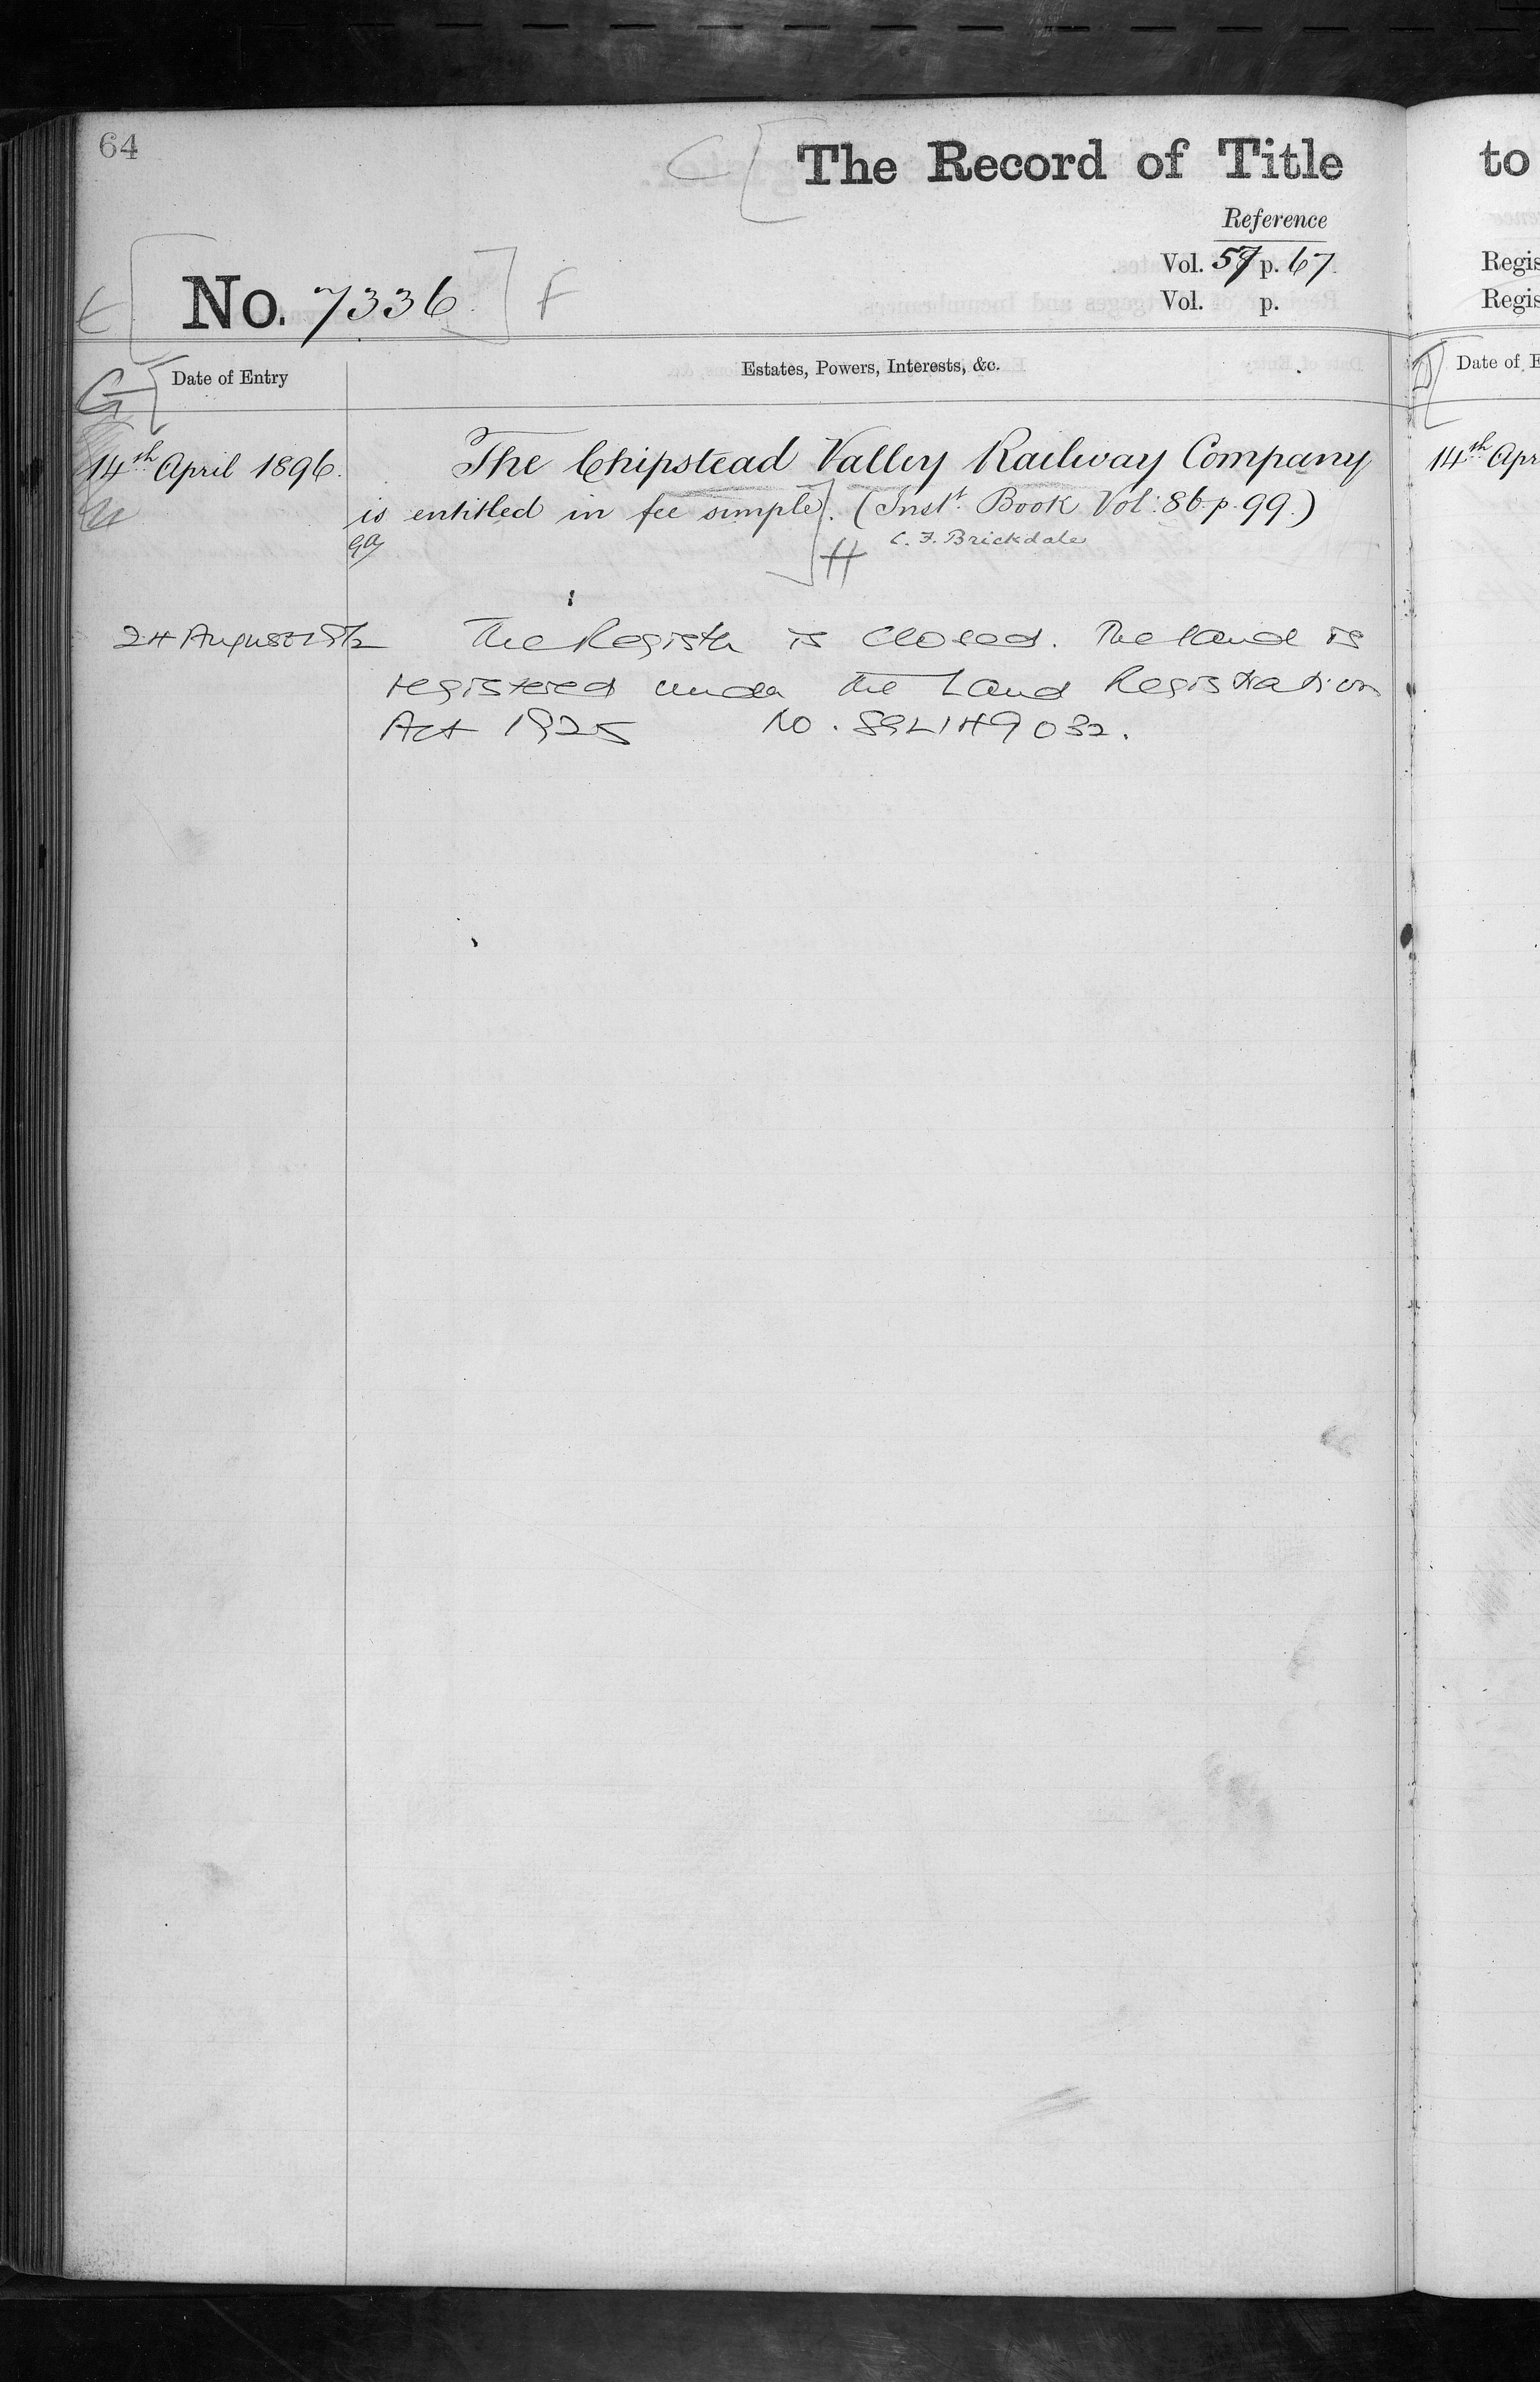 64
C
The Record of Title
to
Reference
Vol. 57 p. 67
Regis
E No. 7336 F
Vol. p.
Regis
G Date of Entry
Estates, Powers, Interests, &c.
D Date of E
14th April 1896.
The Chipstead Valley Railway Company
14th Apr
is entitled in fee simple. (Inst. Book Vol: 86 p. 99.)
H C. F. Brickdale
24 August
The Register is closed. The land is
registered under the Land Registration
Act 1925 No. SGL149032.